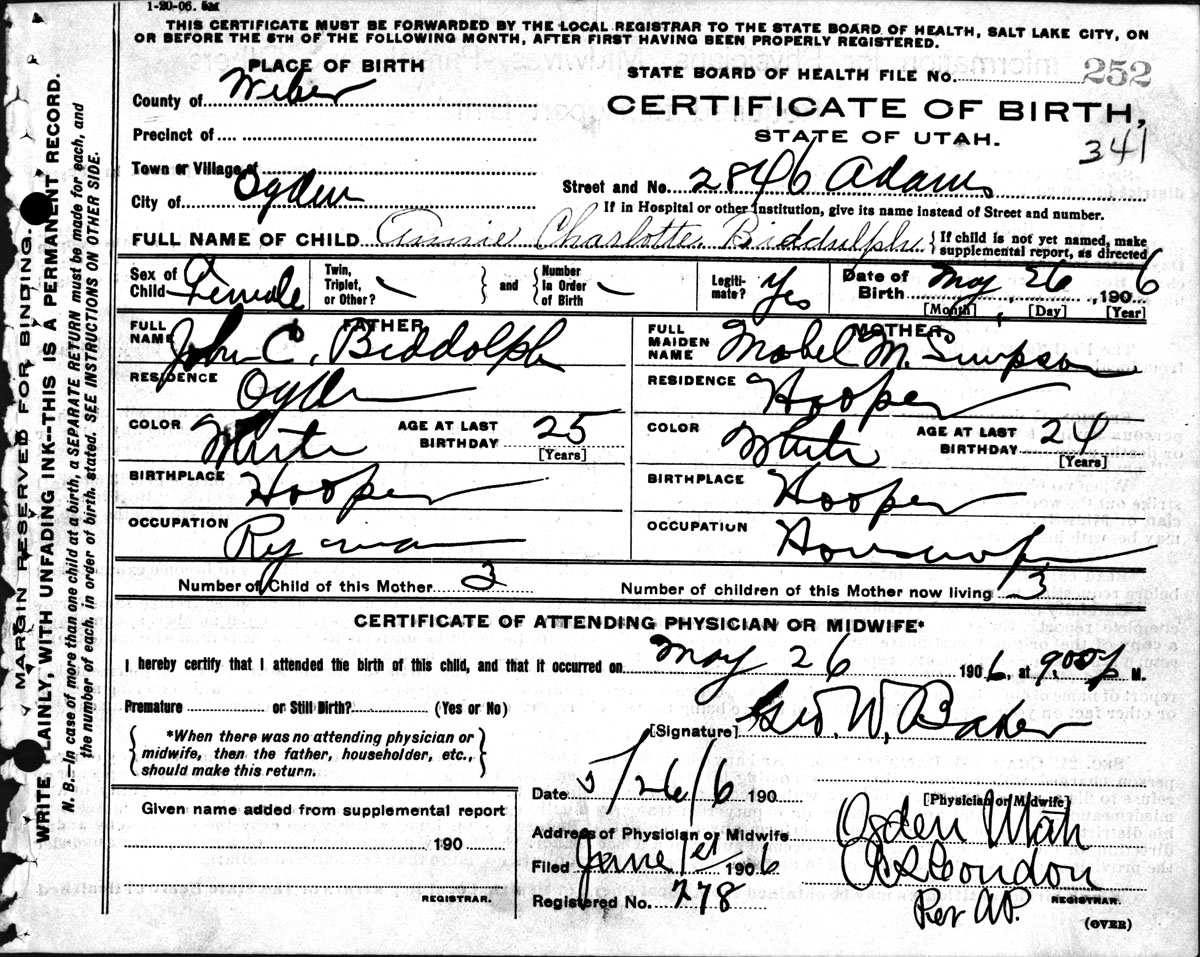 1-20-06. 5M
THIS CERTIFICATE MUST BE FORWARDED BY THE LOCAL REGISTRAR TO THE STATE BOARD OF HEALTH, SALT LAKE CITY, ON
OR BEFORE THE 5TH OF THE FOLLOWING MONTH, AFTER FIRST HAVING BEEN PROPERLY REGISTERED.
PLACE OF BIRTH
STATE BOARD OF HEALTH FILE No. 252
County of Weber
CERTIFICATE OF BIRTH,
Precinct of
STATE OF UTAH.
341
Town or Village of
Street and No. 2846 Adams
City of Ogden
If in Hospital or other Institution, give its name instead of Street and number.
FULL NAME OF CHILD Annie Charlotte Biddulph { If child is not yet named, make
supplemental report, as directed
Sex of Child Female
Twin, Triplet, or Other? } and { Number In Order of Birth
Legiti- mate? Yes
Date of Birth May 26, 1906
[Month] [Day] [Year]
FATHER
FULL NAME John C. Biddolph
RESIDENCE Ogden
COLOR White AGE AT LAST BIRTHDAY 25 [Years]
BIRTHPLACE Hooper
OCCUPATION
MOTHER
FULL MAIDEN NAME Mabel M. Simpson
RESIDENCE Hooper
COLOR White AGE AT LAST BIRTHDAY 24 [Years]
BIRTHPLACE Hooper
OCCUPATION Housewife
Number of Child of this Mother 3 Number of children of this Mother now living 3
CERTIFICATE OF ATTENDING PHYSICIAN OR MIDWIFE*
I hereby certify that I attended the birth of this child, and that it occurred on May 26 1906, at 9.00 P M.
Premature or Still Birth? (Yes or No)
{ *When there was no attending physician or
midwife, then the father, householder, etc.,
should make this return. }
[Signature] Geo. W. Baker
Date 5/26/6 190
[Physician or Midwife]
Given name added from supplemental report
190
REGISTRAR.
Address of Physician or Midwife Ogden Utah
Filed June 1st 1906
Registered No. 278
Condon
Per A.P. REGISTRAR.
(OVER)
MARGIN RESERVED FOR BINDING.
WRITE PLAINLY, WITH UNFADING INK--THIS IS A PERMANENT RECORD.
N. B.--In case of more than one child at a birth, a SEPARATE RETURN must be made for each, and
the number of each, in order of birth, stated. SEE INSTRUCTIONS ON OTHER SIDE.